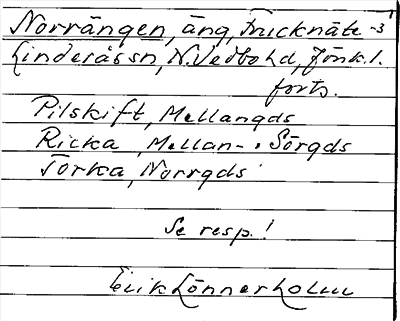 Norrängen, äng, Trucknäte-3
Linderås sn, N. Vedbo hd, Jönk. l.
forts.
Pilskift, Mellangds
Ricka, Mellan- o Sörgds
Torka, Norrgds
Se resp.!
Erik Lönnerholm